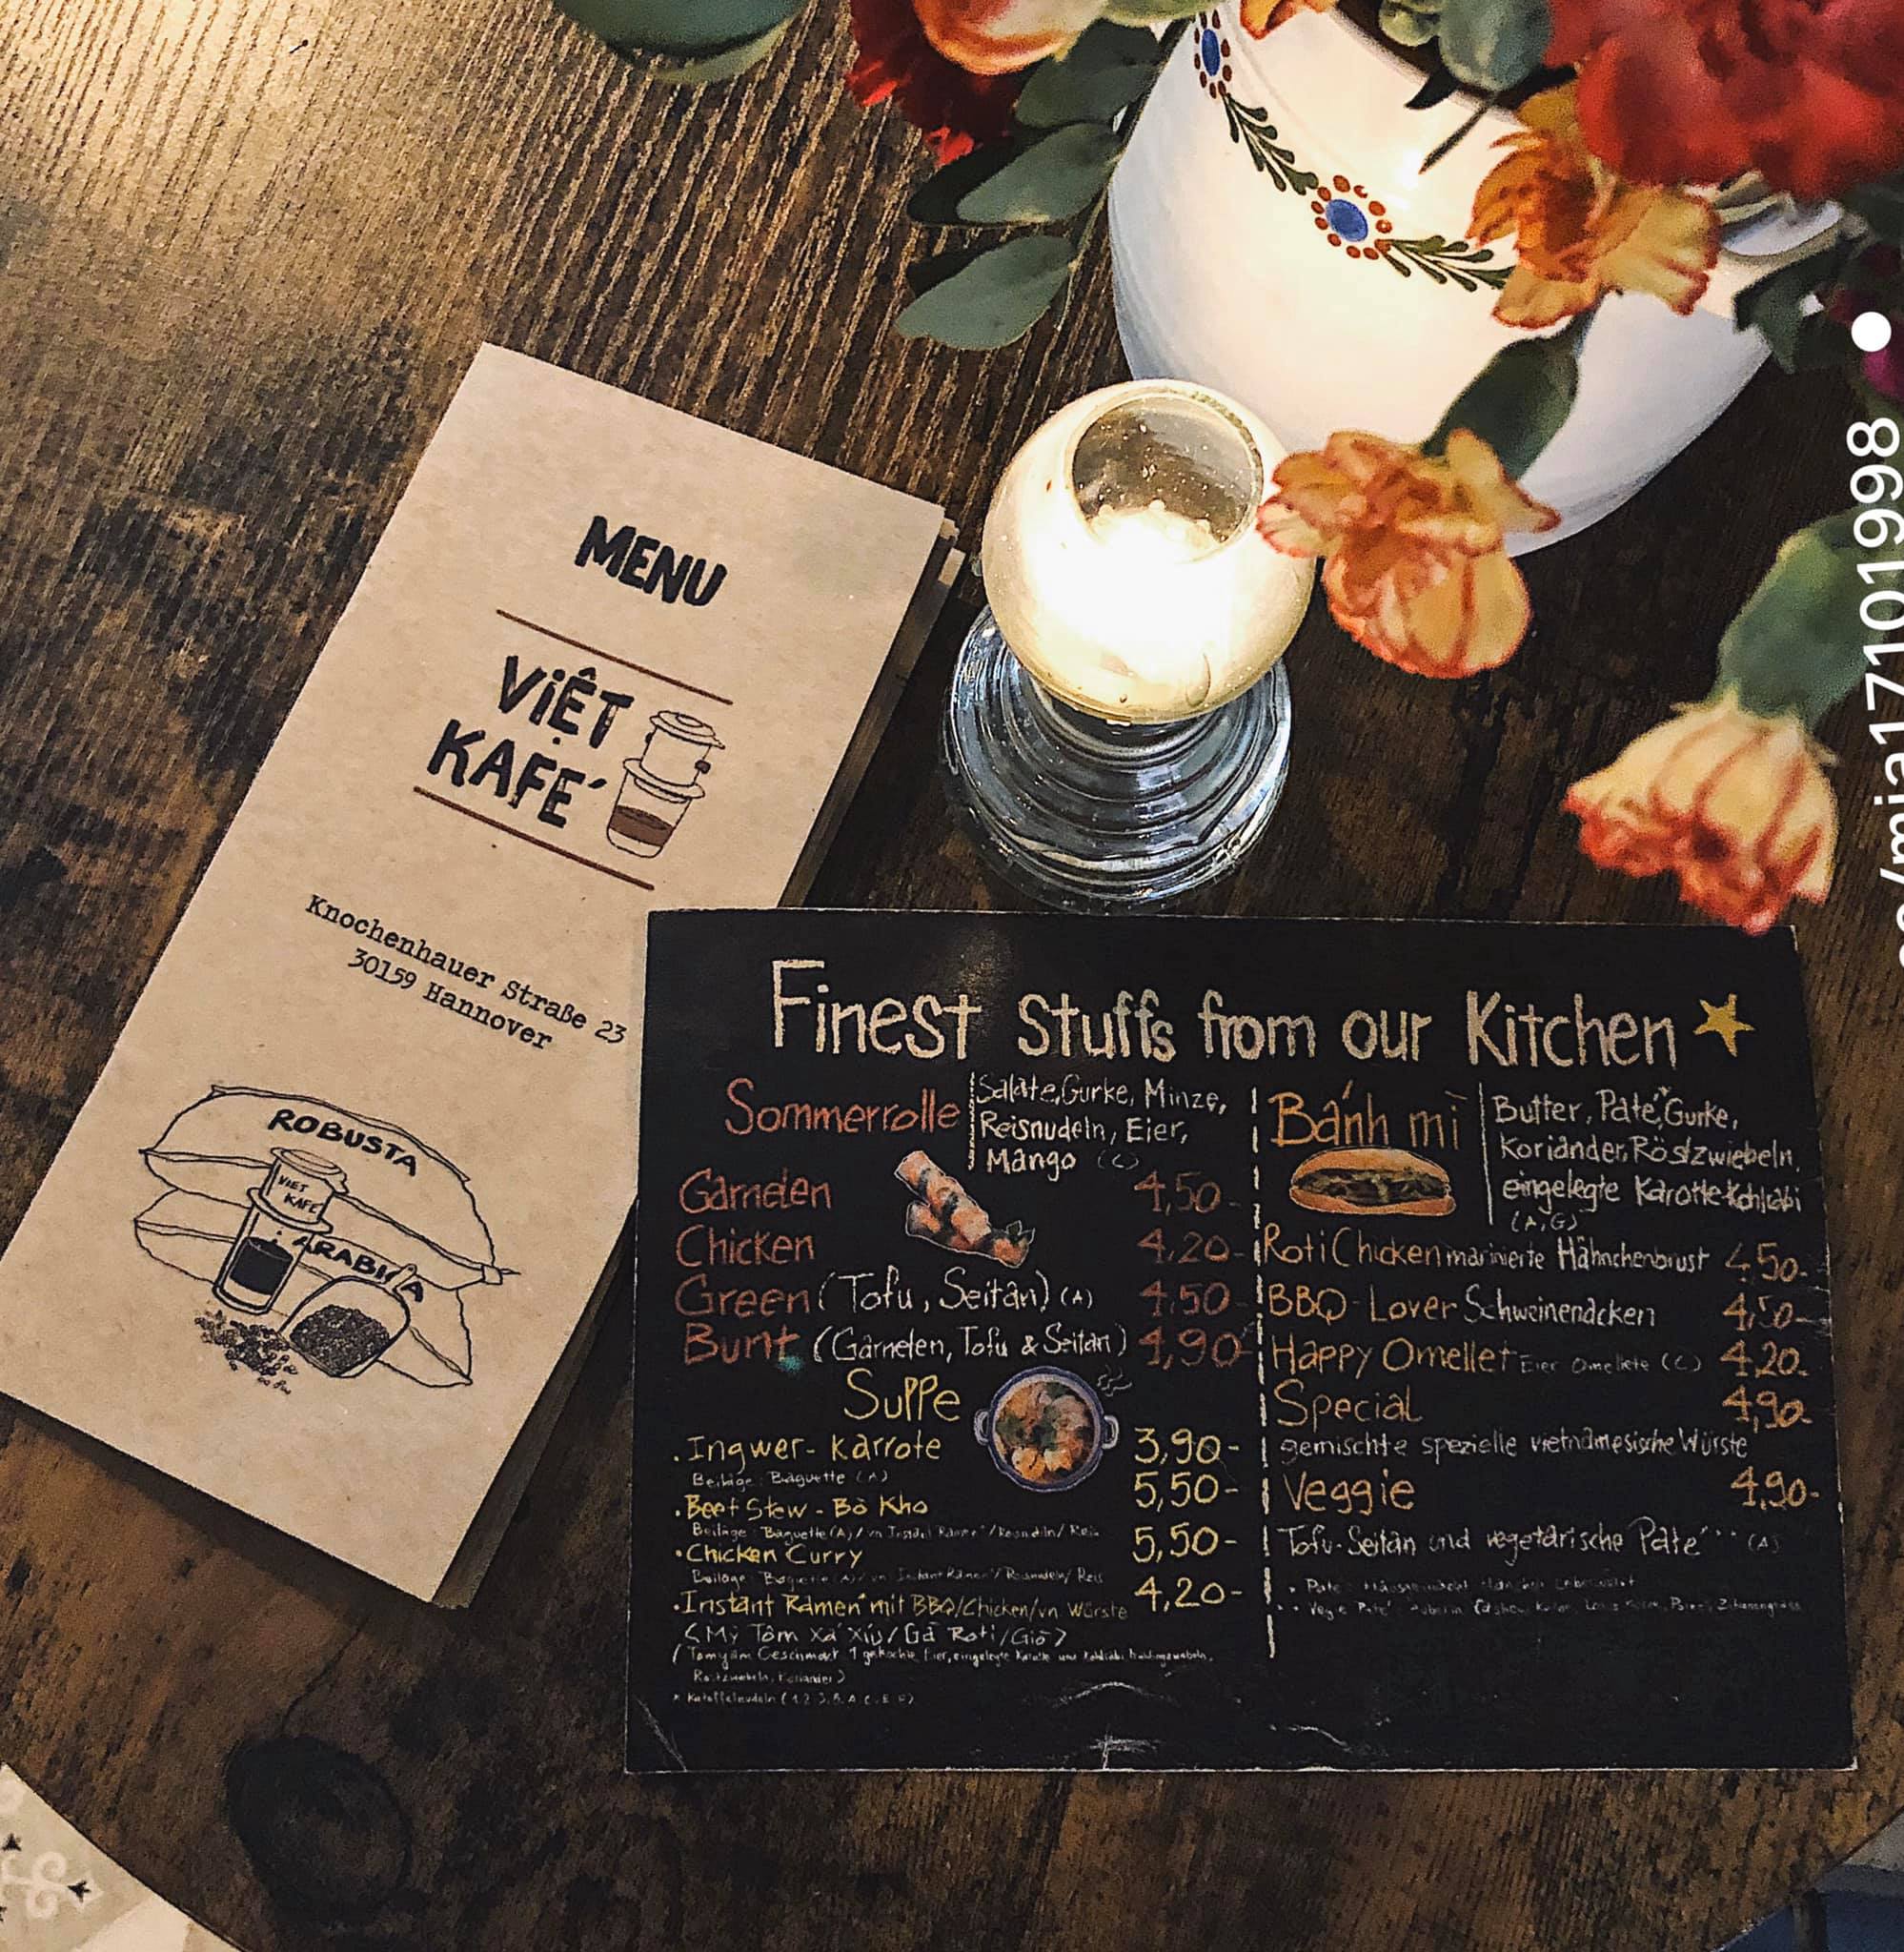 MENU
VIỆT
KAFE´
Knochenhauer Straße 23
30159 Hannover
ROBUSTA
VIET
KAFE
ARABICA
Finest Stuffs from our Kitchen
Sommerrolle
Salate, Gurke, Minze,
Reisnudeln, Eier,
Mango (C)
Garnelen 4,50-
Chicken 4,20-
Green (Tofu, Seitan) (A) 4,50-
Bunt (Garnelen, Tofu & Seitan) 4,90-
Suppe
. Ingwer-Karrote 3,90-
Beilage: Baguette (A)
. Beef Stew - Bò Kho 5,50-
Beilage: Baguette (A) / vn
. Chicken Curry 5,50-
Beilage: Baguette (A) / vn Instant Ramen* / Reisnudeln / Reis
. Instant Ramen* mit BBQ/Chicken/vn Würste 4,20-
<Mỳ Tôm Xá Xíu/Gà Roti/Giò>
(Tomyam Geschmack 1 gekochte Eier, eingelegte Karotte und Kohlrabi,
Röstzwiebeln, Koriander)
* Kartoffelnudeln
Bánh mì
Butter, Paté*, Gurke,
Koriander, Röstzwiebeln,
eingelegte Karotte Kohlrabi
(A,G)
Roti Chicken marinierte Hähnchenbrust 4,50-
BBQ-Lover Schweinenacken 4,50-
Happy Omellet Eier Omellete (C) 4,20-
Special 4,90-
gemischte spezielle vietnamesische Würste
Veggie 4,90-
Tofu-Seitan und vegetarische Paté** (A)
* Paté: Leberwurst
** Vegie Paté:
mia17101998